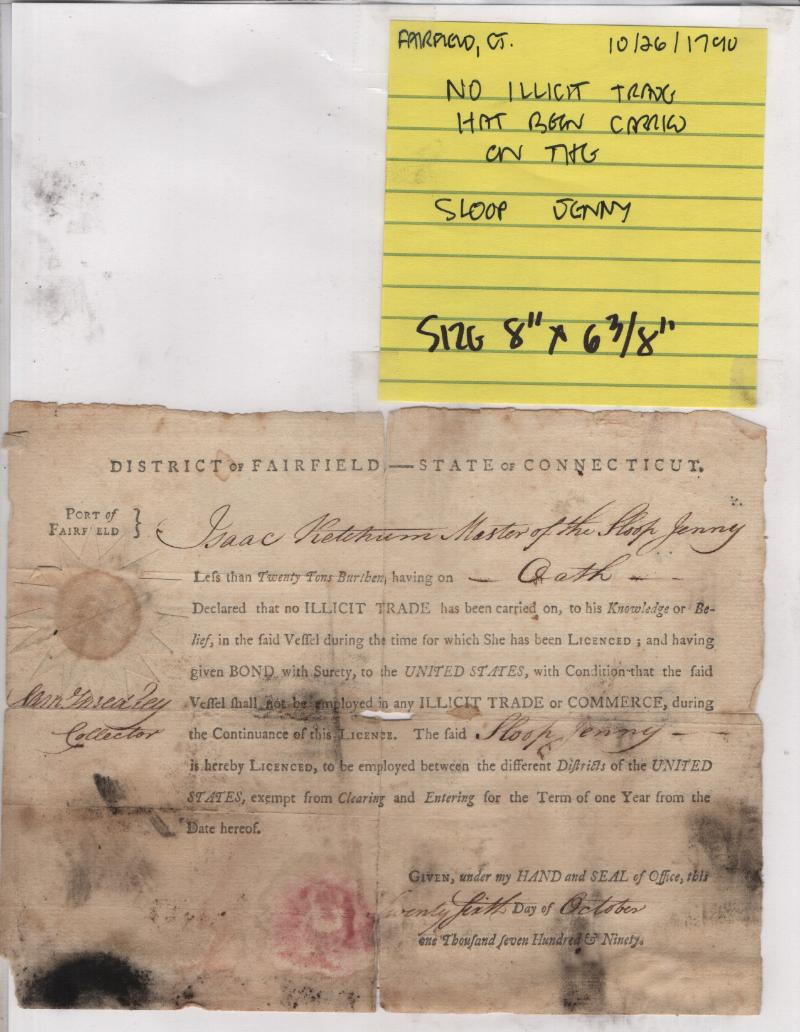 FAIRFIELD, CT. 10/26/1790
NO ILLICIT TRADE
HAT BEEN CARRIED
ON THE
SLOOP JENNY
SIZE 8" x 6 3/8"
DISTRICT OF FAIRFIELD,—STATE OF CONNECTICUT.
PORT of
FAIRFIELD }
Isaac Ketchum Master of the Sloop Jenny
Leſs than Twenty Tons Burthen, having on — Oath —
Declared that no ILLICIT TRADE has been carried on, to his Knowledge or Be-
lief, in the ſaid Veſſel during the time for which She has been LICENCED; and having
given BOND with Surety, to the UNITED STATES, with Condition that the ſaid
Veſſel ſhall not be employed in any ILLICIT TRADE or COMMERCE, during
the Continuance of this LICENCE. The ſaid Sloop Jenny —
is hereby LICENCED, to be employed between the different Diſtricts of the UNITED
STATES, exempt from Clearing and Entering for the Term of one Year from the
Date hereof.
Collector
GIVEN, under my HAND and SEAL of Office, this
Twenty Sixth Day of October
one Thouſand ſeven Hundred & Ninety.